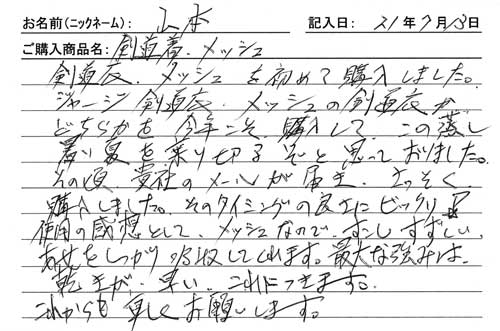 お名前(ニックネーム): 山本 記入日: 21年7月13日
ご購入商品名: 剣道着.メッシュ
剣道衣.メッシュを初めて購入しました。
ジャージ剣道衣.メッシュの剣道衣か
どちらかを今年こそ.購入して.この蒸し
暑い夏を乗り切るぞと思っておりました。
その頃貴社のメールが届き.さっそく
購入しました。そのタイミングの良さにビックリ
使用の感想として.メッシュなので.すこしすずしい.
あせをしっかり吸収してくれます。最大な強みは.
乾きが.早い.これにつきます。
これからも宜しくお願いします。